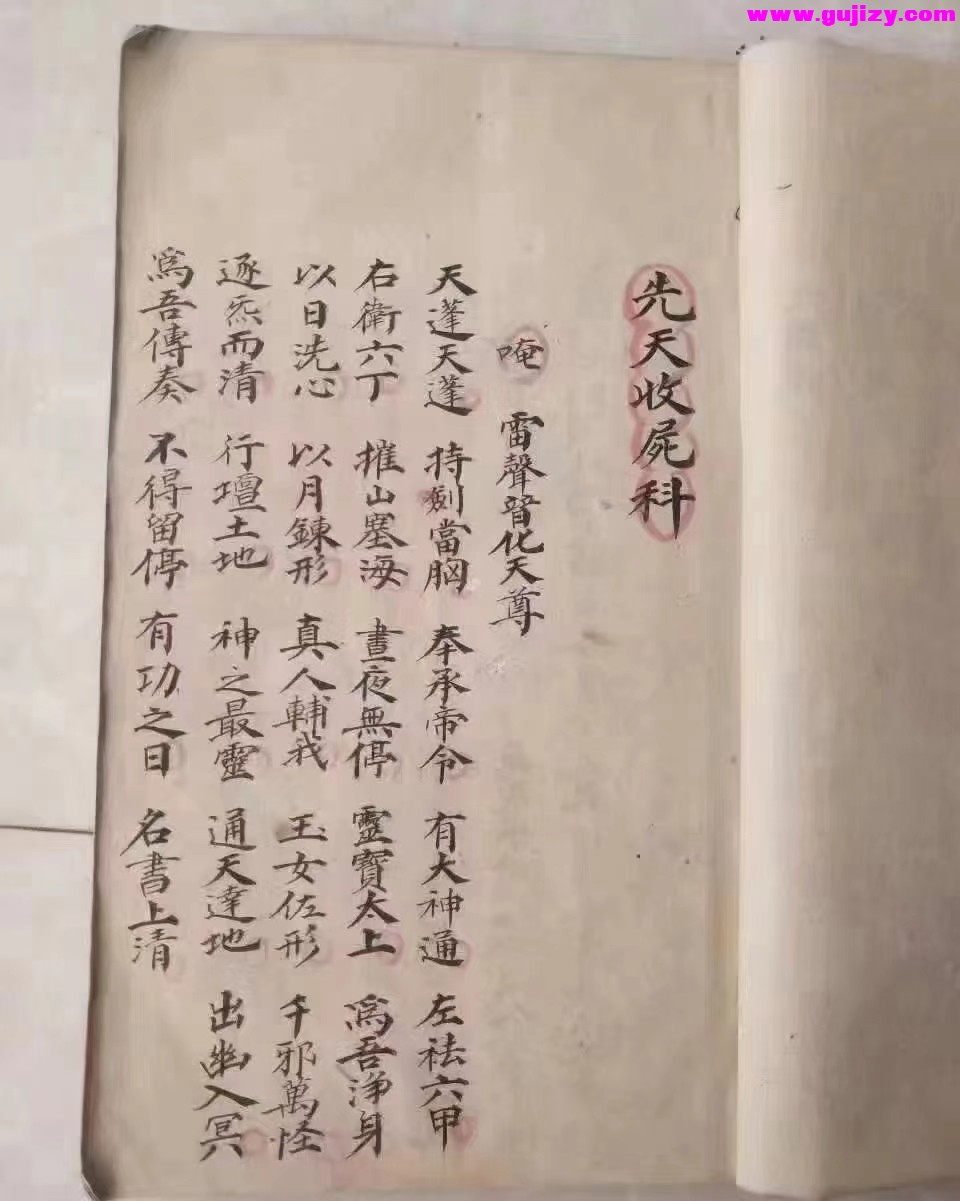 www.gujizy.com
先天收屍科
唵 雷聲普化天尊
天蓬天蓬 持劍當胸 奉承帝令 有大神通 左祛六甲
右衛六丁 摧山塞海 晝夜無停 靈寶太上 為吾淨身
以日洗心 以月鍊形 真人輔我 玉女佐形 千邪萬怪
逐炁而清 行壇土地 神之最靈 通天達地 出幽入冥
為吾傳奏 不得留停 有功之日 名書上清